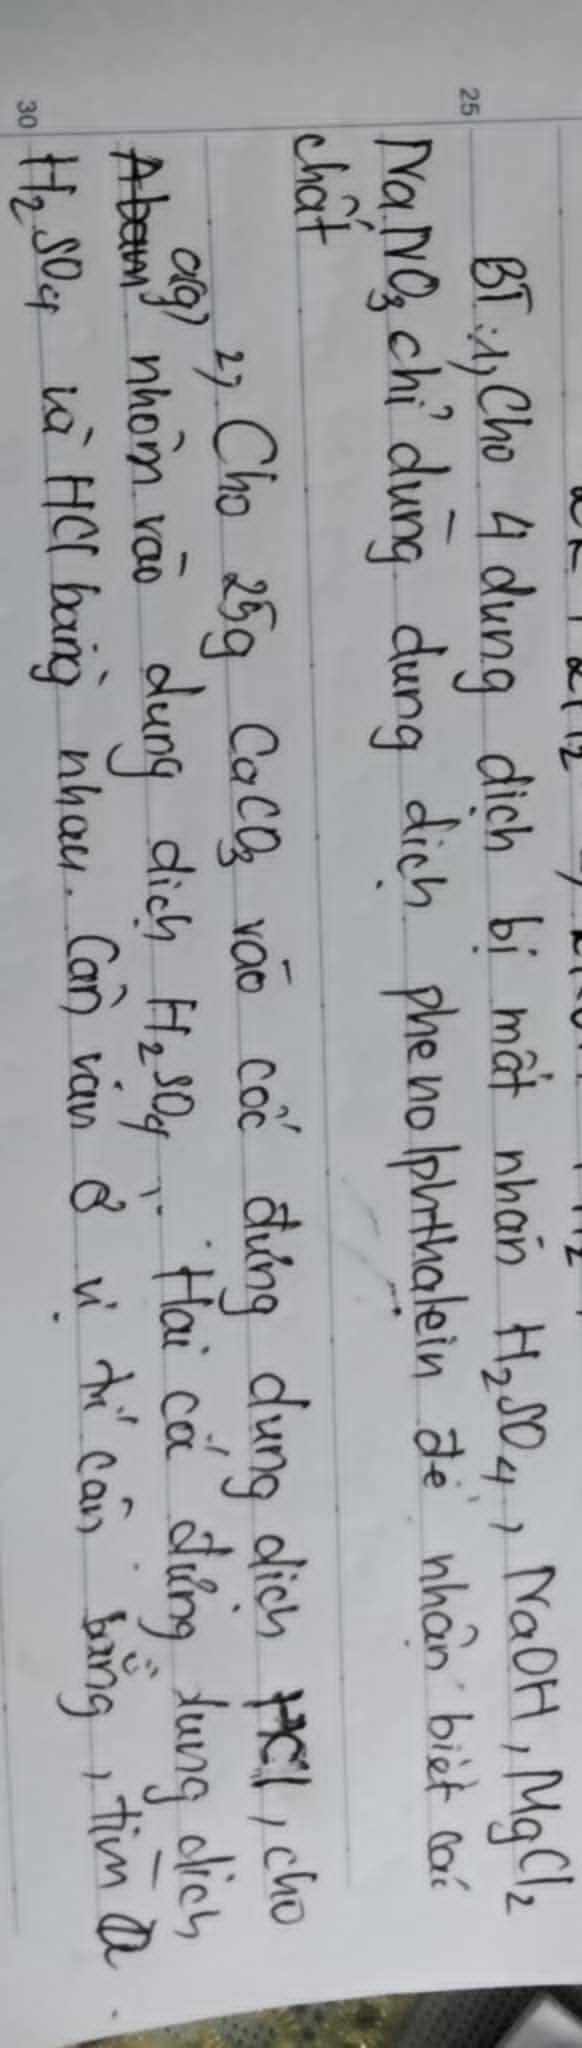 25
BT: 1, Cho 4 dung dịch bị mất nhãn H2SO4, NaOH, MgCl2
NaNO3 chỉ dùng dung dịch phenolphthalein để nhận biết các
chất
2, Cho 25g CaCO3 vào cốc đựng dung dịch HCl, cho
a(g) nhôm vào dung dịch H2SO4. Hai cố đựng dung dịch
30
H2SO4 và HCl bằng nhau. Cân vẫn ở vị trí cân bằng, tìm a.